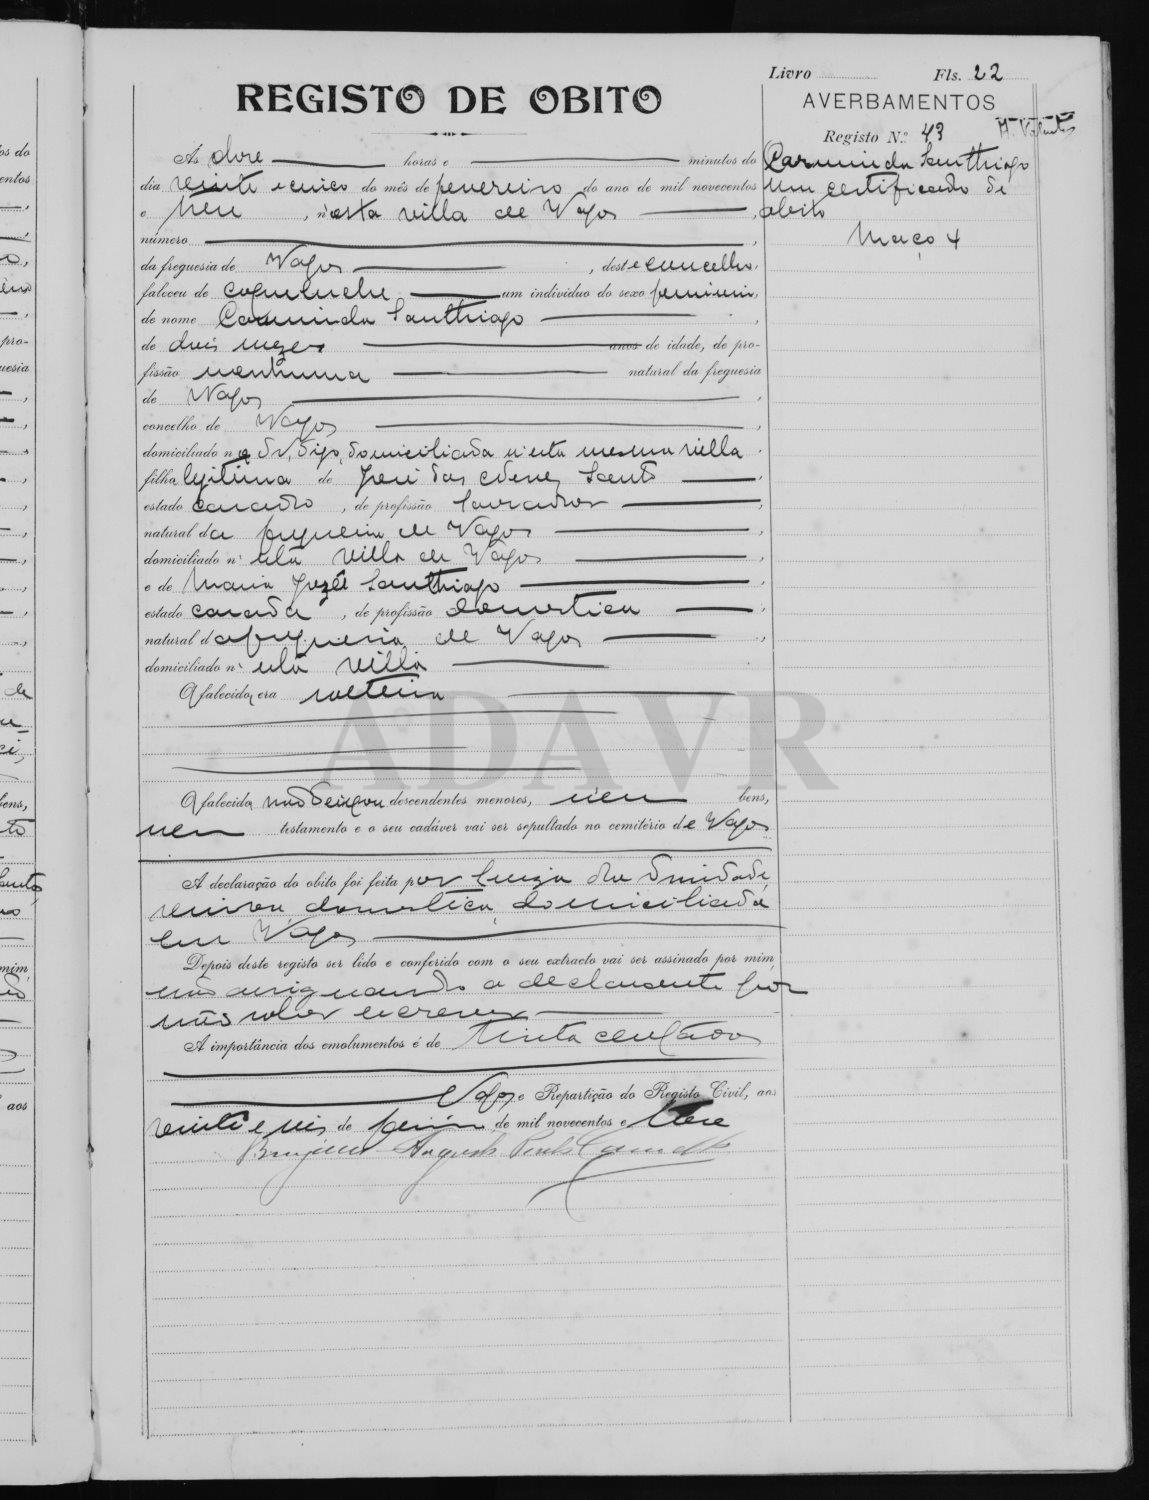 Livro Fls. 22
REGISTO DE OBITO
AVERBAMENTOS
Registo N.º 43
Carminda Santhiago
um certificado de
obito
Maço 4
Às doze horas e minutos do
dia vinte e cinco do mês de fevereiro do ano de mil novecentos
e treze, n'esta villa de Vagos,
número
da freguesia de Vagos, deste concelho,
faleceu de coqueluche um individuo do sexo feminin,
de nome Carminda Santhiago,
de dois mezes anos de idade, de pro-
fissão nenhuma natural da freguesia
de Vagos,
concelho de Vagos,
domiciliado n a digo, domiciliada n'esta mesma villa
filha legitima de José das Neves Santo
estado casado, de profissão lavrador,
natural da freguesia de Vagos
domiciliado n'esta villa de Vagos,
e de Maria José Santhiago,
estado casada, de profissão domestica,
natural da freguesia de Vagos,
domiciliado n'esta villa
A falecida era solteira
A falecida não deixou descendentes menores, nem bens,
nem testamento e o seu cadáver vai ser sepultado no cemitério de Vagos
A declaração do obito foi feita por Luiza da Trindade,
viuva, domestica, domiciliada
em Vagos
Depois deste registo ser lido e conferido com o seu extracto vai ser assinado por mim,
não assignando a declarante por
não saber escrever
A importância dos emolumentos é de trinta centavos
Vagos e Repartição do Registo Civil, aos
vinte e seis de fevereiro de mil novecentos e treze
ADAVR